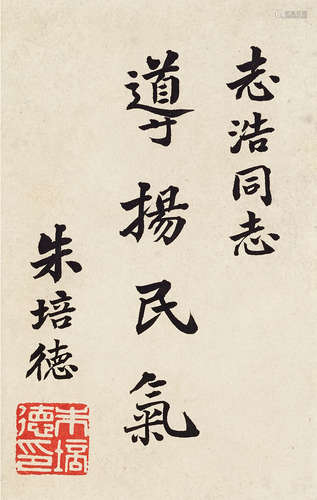 志浩同志
導揚民氣
朱培德
朱培德印